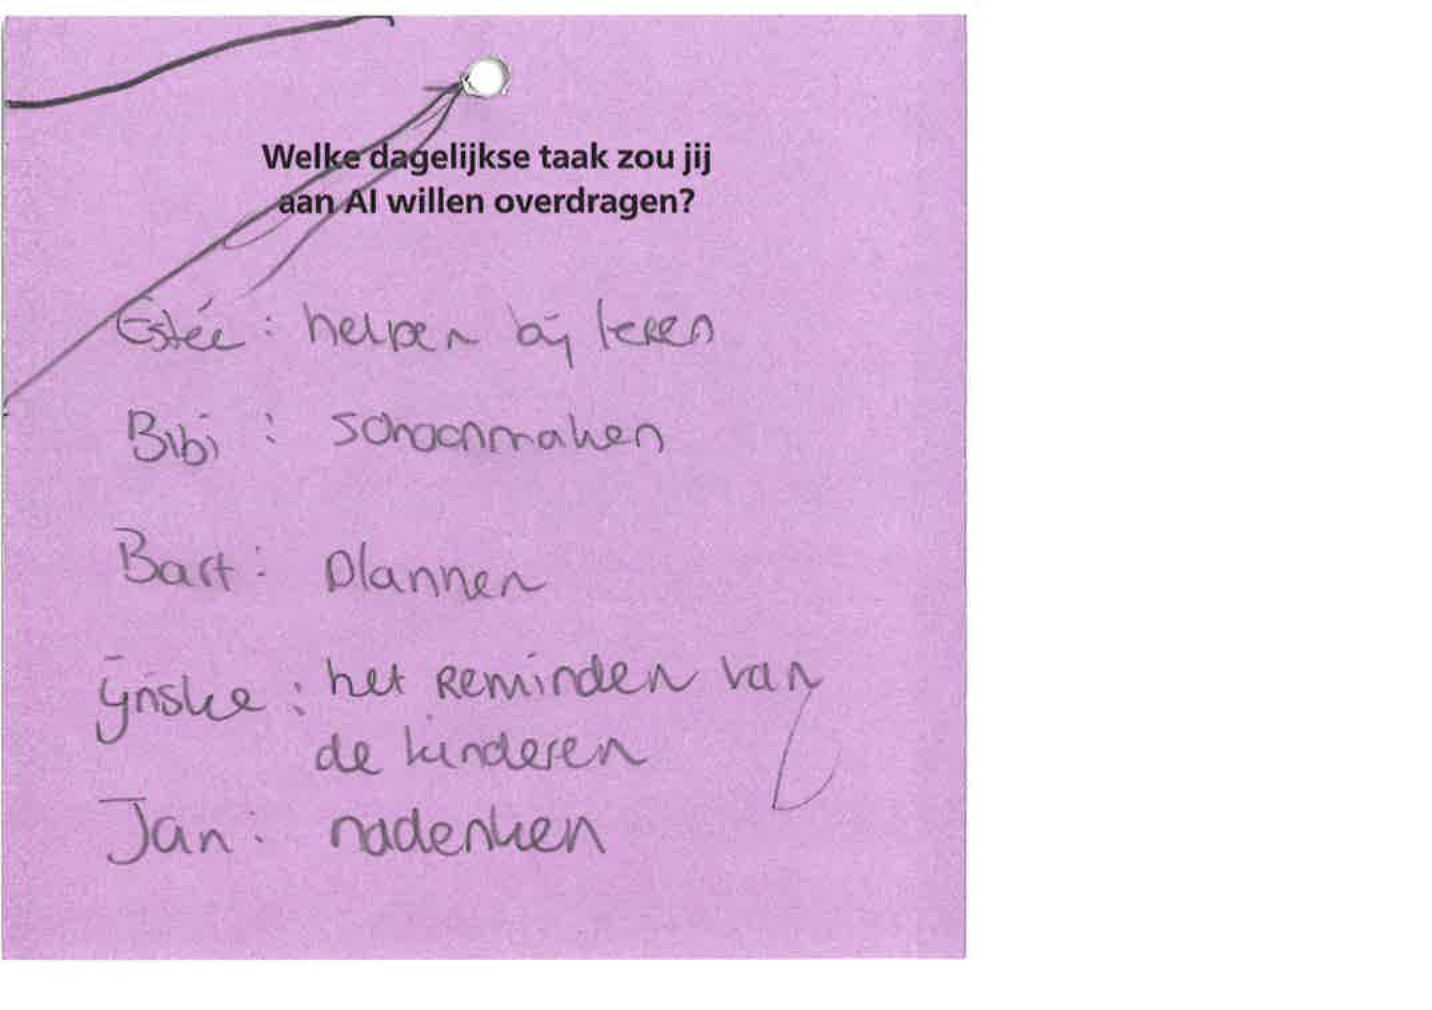 Welke dagelijkse taak zou jij
aan AI willen overdragen?
Estée: helpen bij leren
Bibi: schoonmaken
Bart: plannen
Ijnske: het reminden van
de kinderen
Jan: nadenken